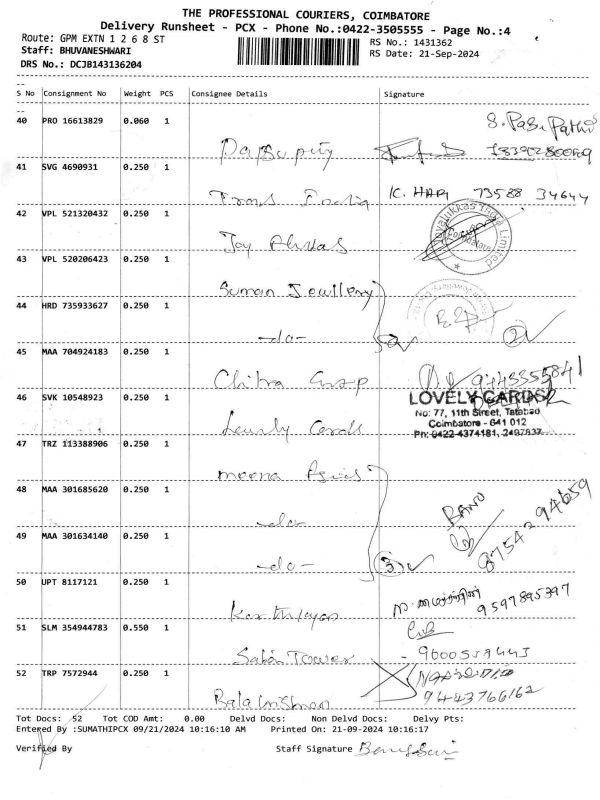 THE PROFESSIONAL COURIERS, COIMBATORE
Delivery Runsheet - PCX - Phone No.:0422-3505555 - Page No.:4
Route: GPM EXTN 1 2 6 8 ST
RS No.: 1431362
Staff: BHUVANESHWARI
RS Date: 21-Sep-2024
DRS No.: DCJB143136204
S No Consignment No Weight PCS Consignee Details Signature
40 PRO 16613829 0.060 1
S. PaSu Pathi
41 SVG 4690931 0.250 1
K. HARI 73588 34644
42 VPL 521320432 0.250 1
Joy Alukkas
Joyalukkas India Limited
Coimbatore
43 VPL 520206423 0.250 1
Suman Jewllery
44 HRD 735933627 0.250 1
-do-
2
45 MAA 704924183 0.250 1
Chitra
46 SVK 10548923 0.250 1
LOVELY CARDS
No: 77, 11th Street, Tatabad
Coimbatore - 641 012
Ph: 0422 4374181, 2497837
Lovely Cards
47 TRZ 113388906 0.250 1
meena
48 MAA 301685620 0.250 1
-do-
BANU
87542 94659
49 MAA 301634140 0.250 1
-do-
3
50 UPT 8117121 0.250 1
Karthikeyan
9597895397
51 SLM 354944783 0.550 1
Tower
52 TRP 7572944 0.250 1
Bala krishnan
9443766162
Tot Docs: 52 Tot COD Amt: 0.00 Delvd Docs: Non Delvd Docs: Delvy Pts:
Entered By :SUMATHIPCX 09/21/2024 10:16:10 AM Printed On: 21-09-2024 10:16:17
Verified By Staff Signature